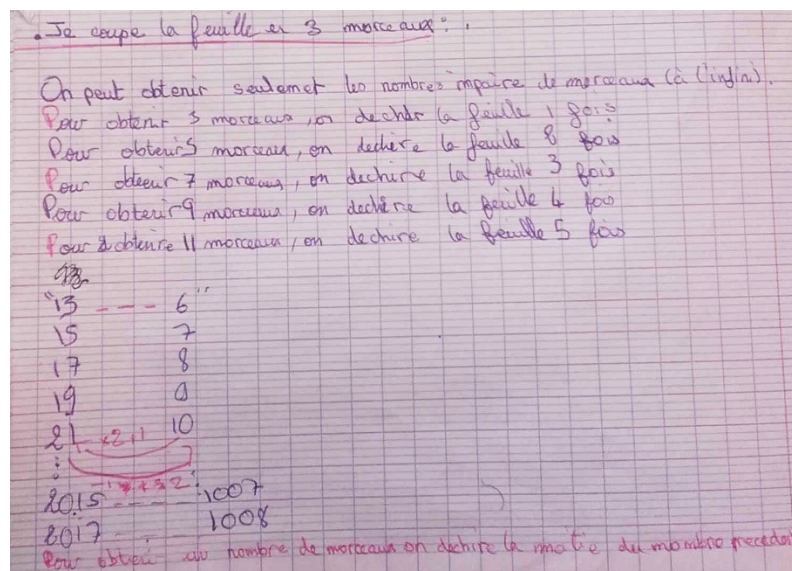 . Je coupe la feuille en 3 morceaux : .
On peut obtenir seulemet les nombres impaire de morceaux (à l'infini).
Pour obtenir 3 morceaux, on dechire la feuille 1 fois
Pour obtenir 5 morceaux, on dechire la feuille 2 fois
Pour obtenir 7 morceaux, on dechire la feuille 3 fois
Pour obtenir 9 morceaux, on dechire la feuille 4 fois
Pour obtenire 11 morceaux, on dechire la feuille 5 fois
"13 - - - 6"
15 7
17 8
19 9
21 10
×2+1
2015 - - - - - 1007
2017 - - . - - 1008
Pour obtenir un nombre de morceaux on dechire la moitie du nombre preceden